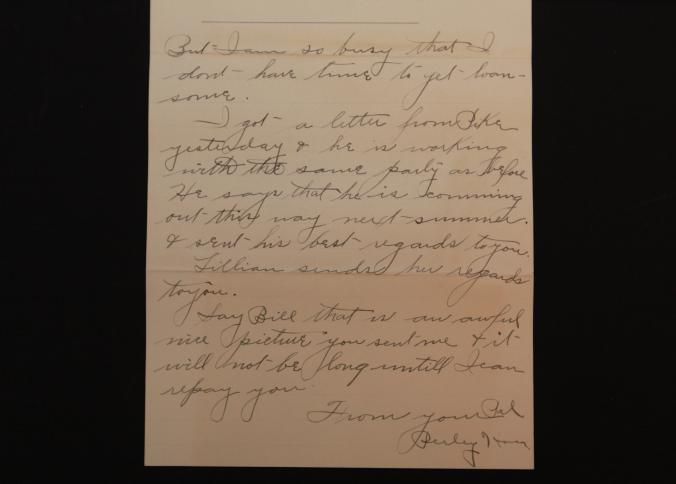 But I am so busy that I
dont have time to get loan-
some.
I got a letter from Pike
yesterday & he is working
with the same party as before
He says that he is comming
out this way next summer.
& sent his best regards to you.
Lillian sends her regards
to you.
Say Bill that is an awful
nice picture you sent me & it
will not be long untill I can
repay you.
From your Pal
Perley